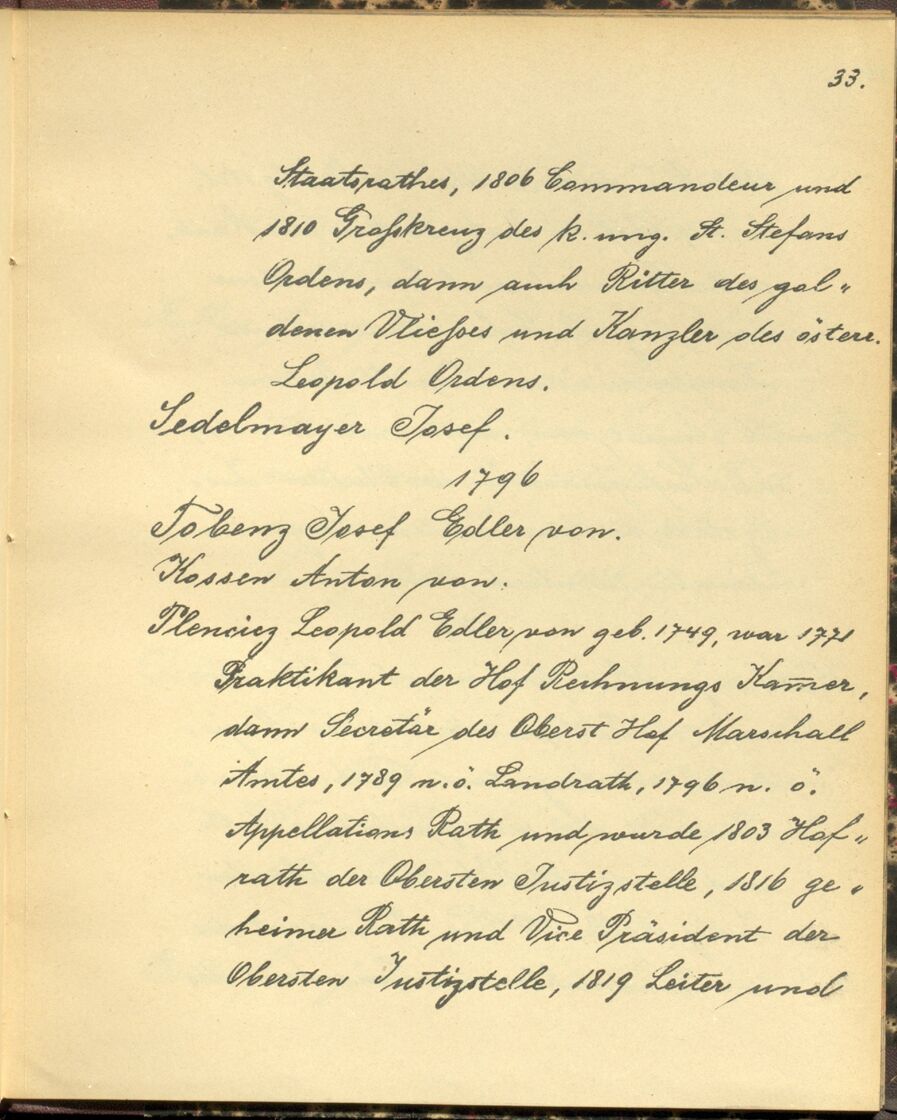 33.
Staatsrathes, 1806 Commandeur und
1810 Großkreuz des k. ung. St. Stefans
Ordens, dann auch Ritter des gol„
denen Vließes und Kanzler des österr.
Leopold Ordens.
Sedelmayer Josef.
1796
Tobenz Josef Edler von.
Kossen Anton von.
Plenciez Leopold Edler von geb. 1749, war 1771
Praktikant der Hof Rechnungs Kam̅er,
dann Secretär des Oberst Hof Marschall
Amtes, 1789 n. ö. Landrath, 1796 n. ö.
Appellations Rath und wurde 1803 Hof„
rath der Obersten Justizstelle, 1816 ge„
heimer Rath und Vice Präsident der
Obersten Justizstelle, 1819 Leiter und